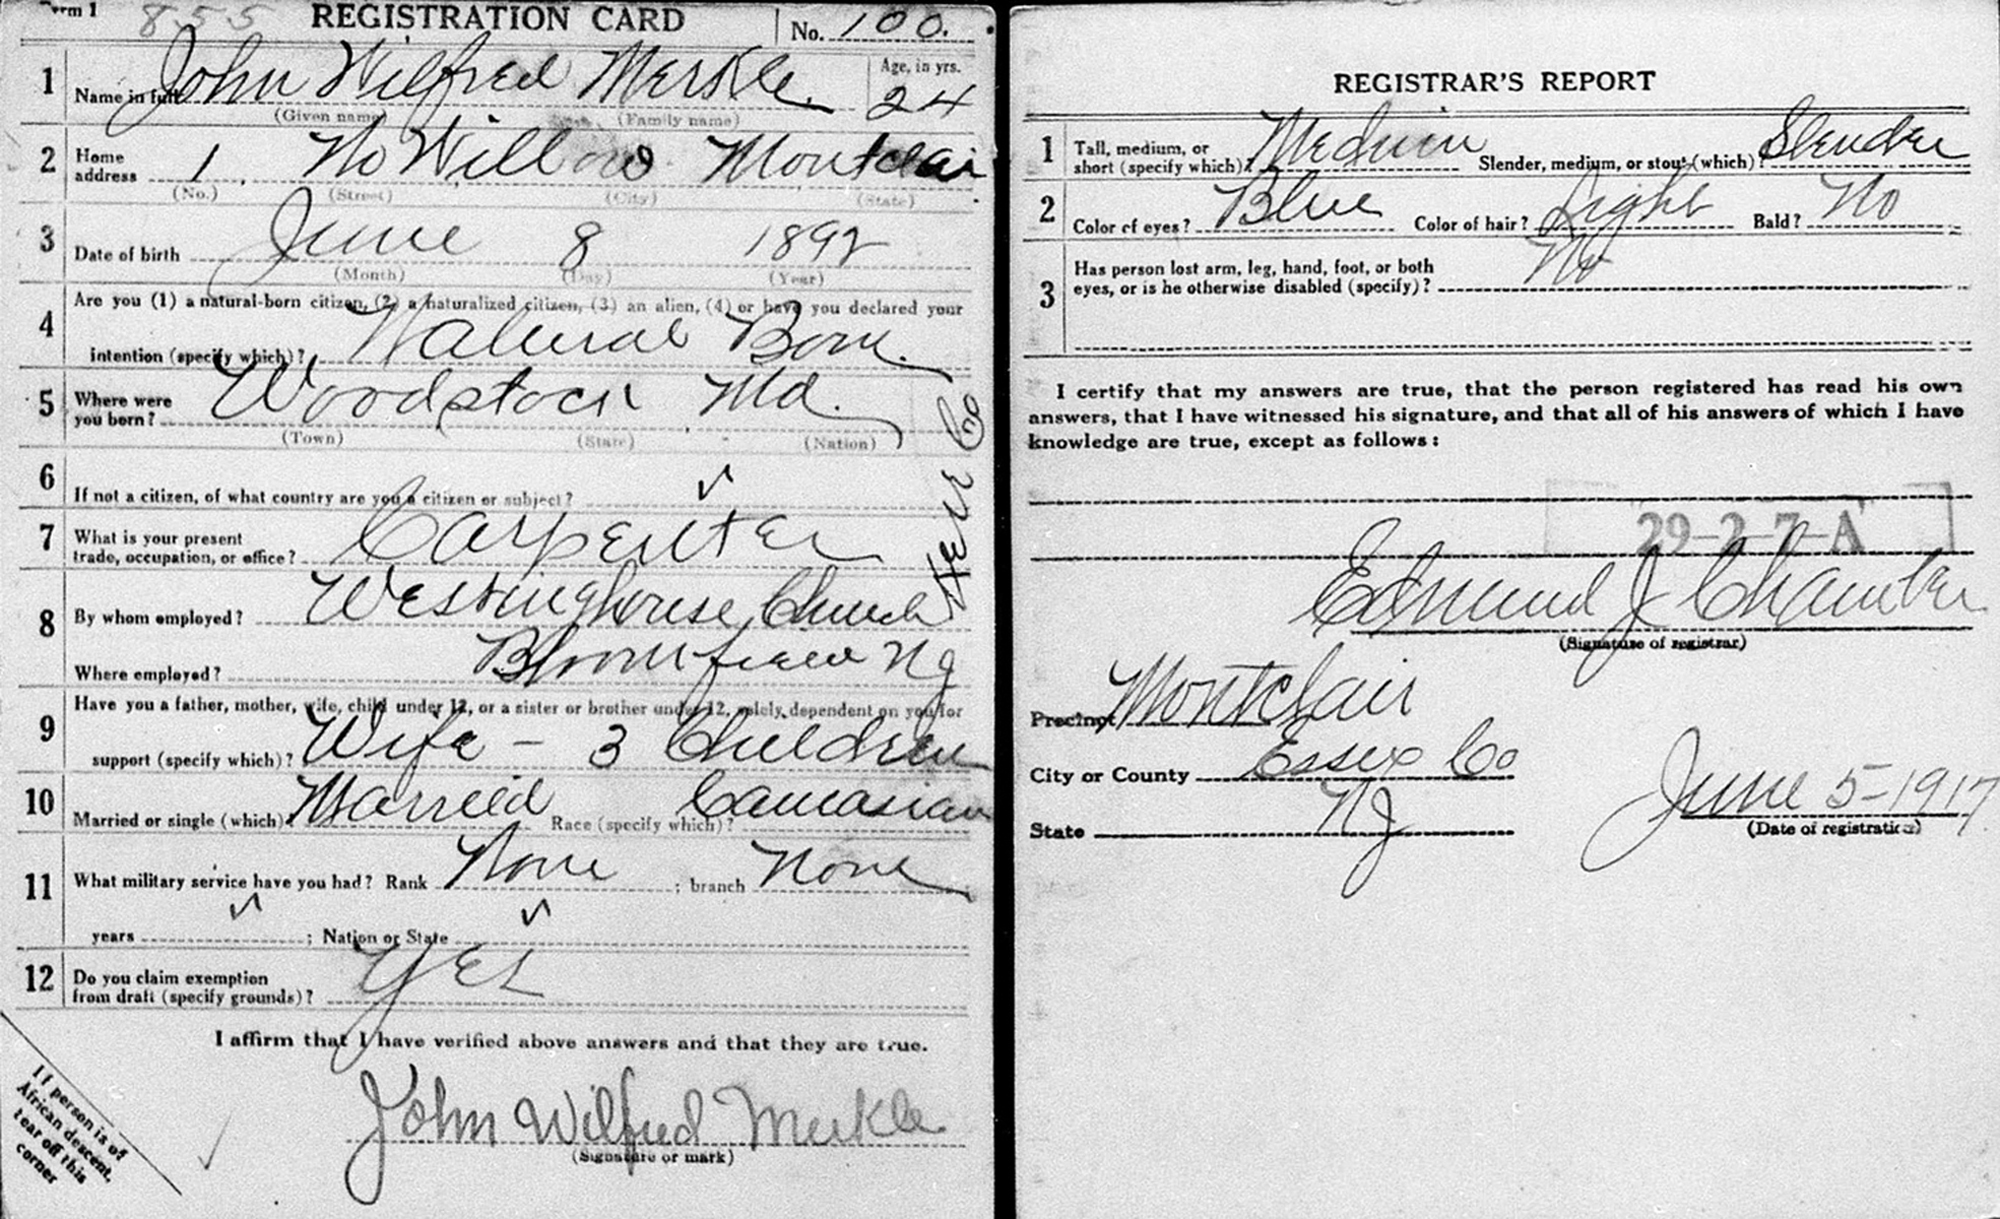 Form 1 855 REGISTRATION CARD No. 100.
1 Name in full John Wilfred Merkle. Age, in yrs. 24
(Given name) (Family name)
2 Home address 1 No Willow Montclair
(No.) (Street) (City) (State)
3 Date of birth June 8 1892
(Month) (Day) (Year)
4 Are you (1) a natural-born citizen, (2) a naturalized citizen, (3) an alien, (4) or have you declared your
intention (specify which)? Natural Born.
5 Where were you born? Woodstock Md.
(Town) (State) (Nation)
6 If not a citizen, of what country are you a citizen or subject? ✓
7 What is your present trade, occupation, or office? Carpenter
8 By whom employed? Westinghouse Church Kerr Co
Where employed? Bloomfield NJ
9 Have you a father, mother, wife, child under 12, or a sister or brother under 12, solely dependent on you for
support (specify which)? Wife - 3 Children
10 Married or single (which)? Married Race (specify which)? Caucasian
11 What military service have you had? Rank None ; branch None
years ✓ ; Nation or State ✓
12 Do you claim exemption from draft (specify grounds)? Yes
I affirm that I have verified above answers and that they are true.
John Wilfred Merkle
(Signature or mark)
If person is of
African descent,
tear off this
corner
REGISTRAR'S REPORT
1 Tall, medium, or short (specify which)? Medium Slender, medium, or stout (which)? Slender
2 Color of eyes? Blue Color of hair? Light Bald? No
3 Has person lost arm, leg, hand, foot, or both
eyes, or is he otherwise disabled (specify)? No
I certify that my answers are true, that the person registered has read his own
answers, that I have witnessed his signature, and that all of his answers of which I have
knowledge are true, except as follows:
29-2-7-A
Edmund J
(Signature of registrar)
Precinct Montclair
City or County Essex Co
State NJ
June 5-1917
(Date of registration)